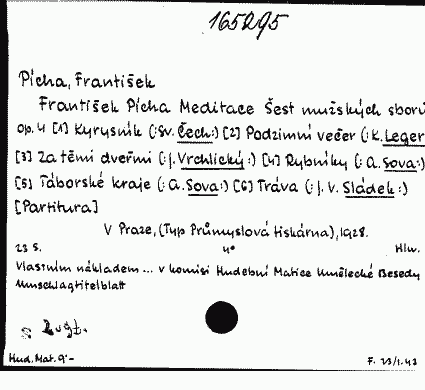 165295
Pícha, František
František Pícha Meditace Šest mužských sborů
op. 4 [1] Kyrysník (: Sv. Čech :) [2] Podzimní večer (: K. Leger
[3] Za těmi dveřmi (: J. Vrchlický :) [4] Rybníky (: A. Sova :)
[5] Táborské kraje (: A. Sova :) [6] Tráva (: J. V. Sládek :)
[Partitura]
V Praze, (Typ Průmyslová tiskárna), 1928.
23 S. 4° Hlw.
Vlastním nákladem... v komisi Hudební Matice Umělecké Besedy
Umschlagtitelblatt
Hud. Mat. 9.- F. 23/1.43